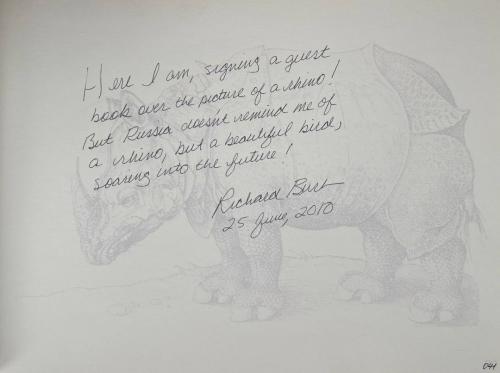 Here I am, signing a guest
book over the picture of a rhino!
But Russia doesn't remind me of
a rhino, but a beautiful bird,
soaring into the future!
Richard
25 June, 2010
041